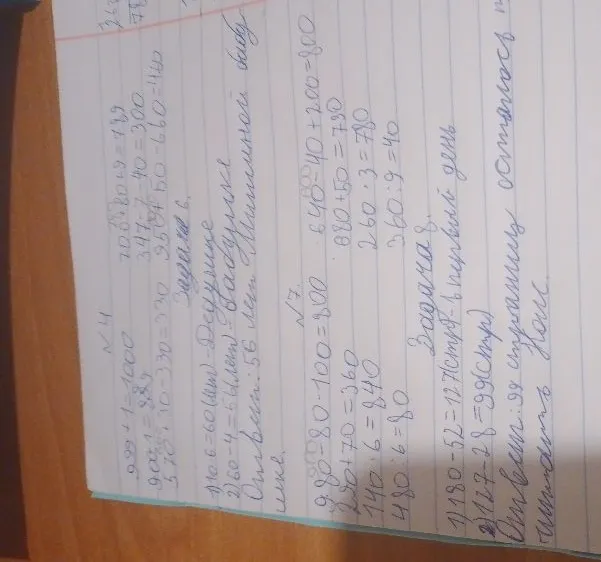 №4
999+1=1000 700+80+9=789
900-1=899 347-7-40=300
370-10-330=330 950+50-660=440
Задача 6.
1) 10·6=60(лет)-Дедушке
2) 60-4=56(лет)-Бабушке
Ответ: 56 лет исполнилось бабу-
шке.
№7.
980-80-100=800 640-40+200=800
290+70=360 880+50=790
140·6=840 260·3=780
480:6=80 360:9=40
Задача 8.
1) 180-52=127(стр)-в первый день
2) 127-28=99(стр)
Ответ: 99 страниц осталось
читать Коле.